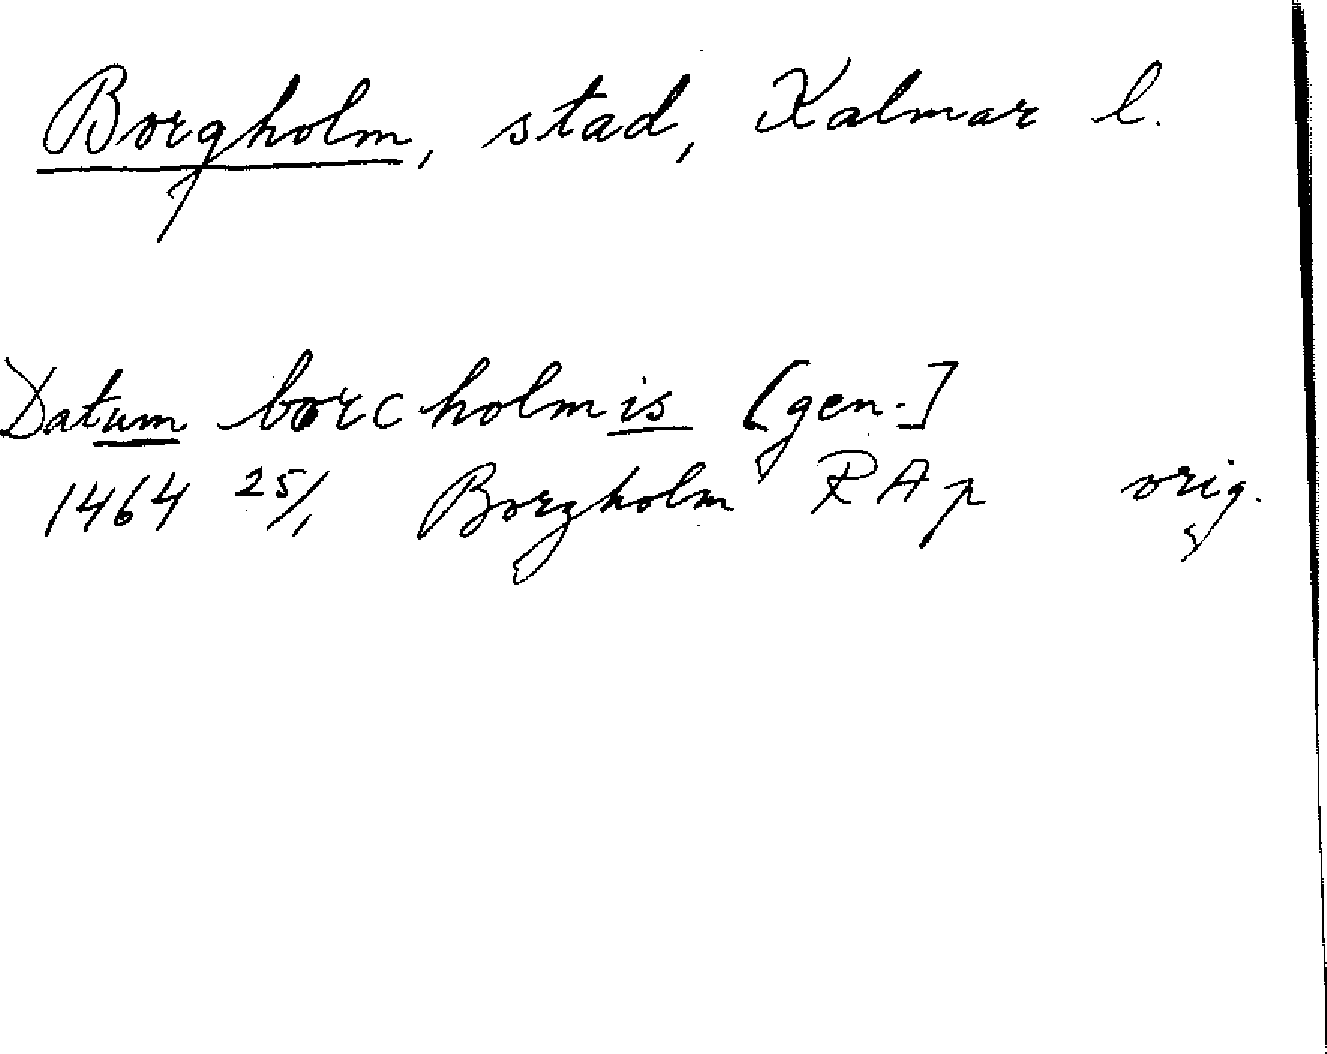 Borgholm, stad, Kalmar l.
Datum borcholmis [gen.]
1464 25/1 Borgholm RAp orig.